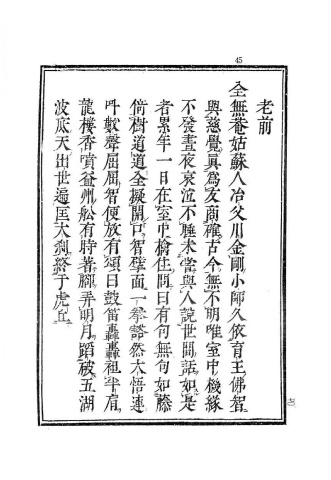 45
老前
全無菴姑蘇人冶父川金剛小師久依育王佛智
與慈覺真為友商確古今無不明唯室中機緣
不發晝夜哀泣不睡未嘗與人說世間話如是
者累年一日在室中擒住問曰有句無句如藤
倚樹道道全擬開口智劈面一拳豁然大悟連
呌數聲屈屈智便放有頌曰鼓笛轟轟袒半肩
龍樓香噴益州舩有時著腳弄明月蹈破五湖
波底天出世遍匡大剎終于虎丘